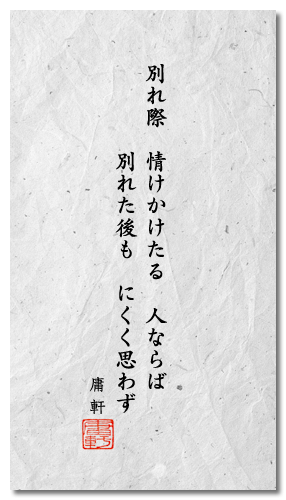 別れ際　情けかけたる　人ならば
別れた後も　にくく思わず
庸軒
庸軒